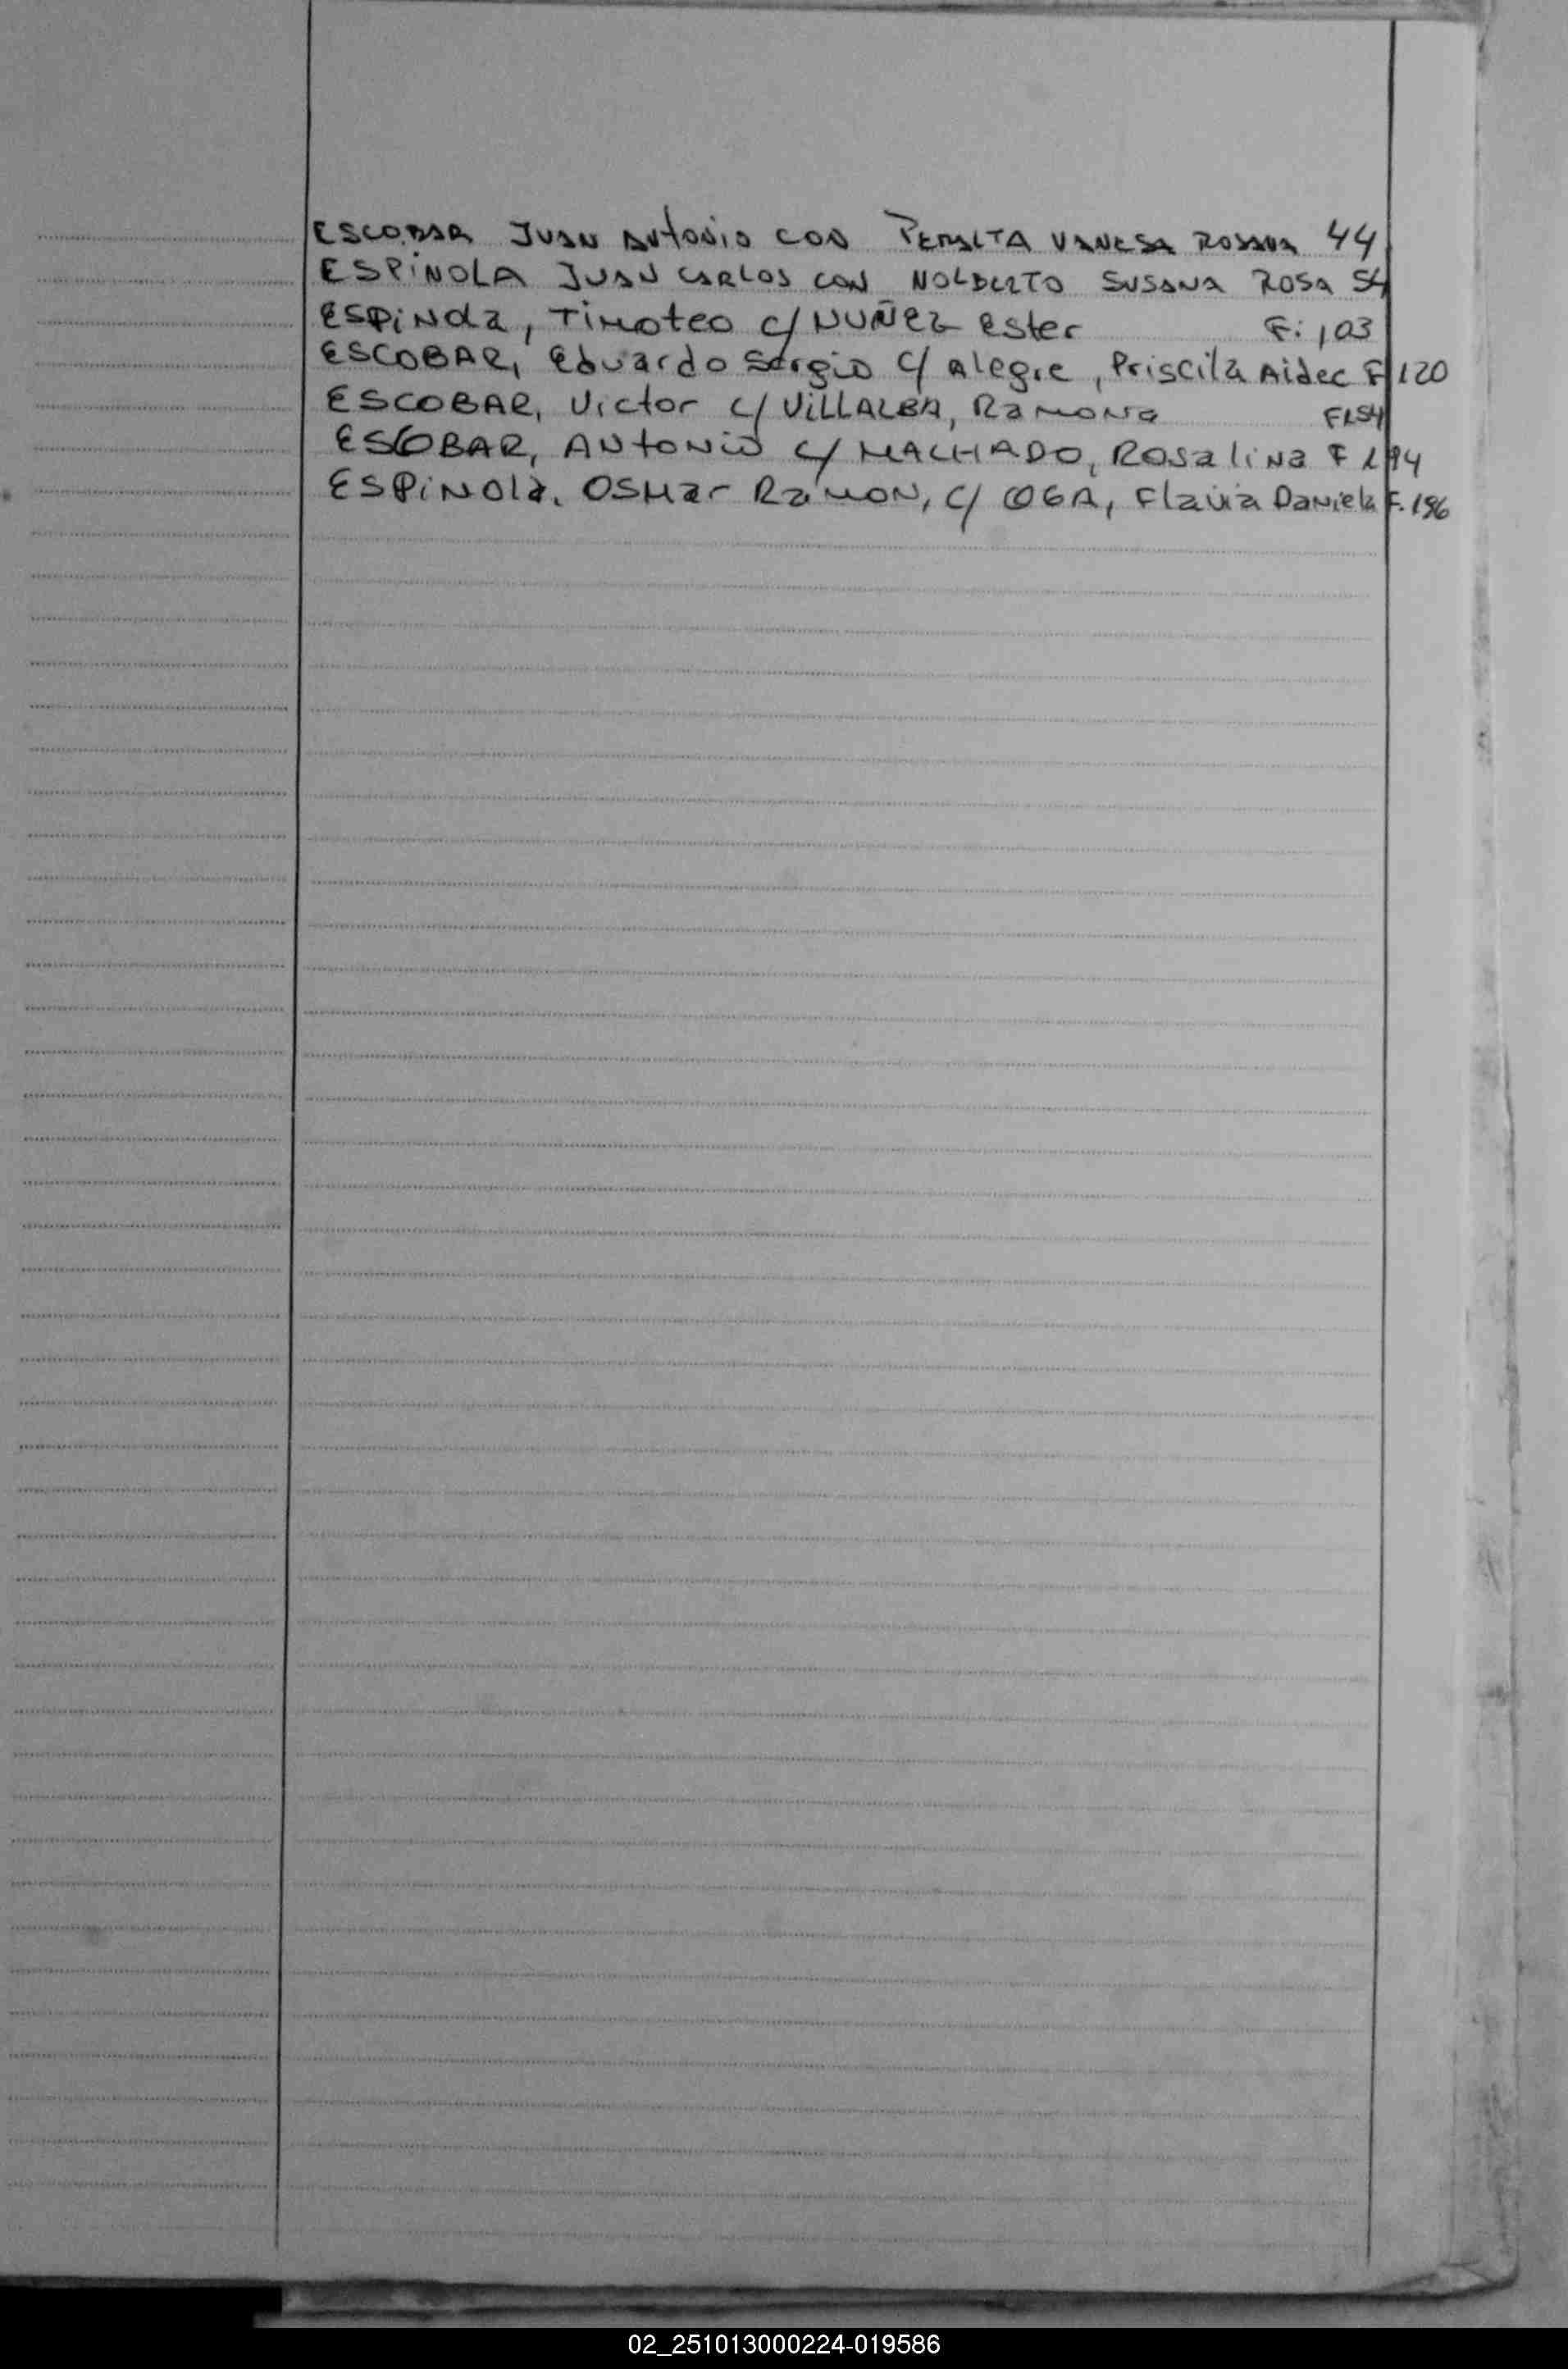 ESCOBAR JUAN ANTONIO CON PERALTA VANESA ROSANA 44
ESPINOLA JUAN CARLOS CON NOLBERTO SUSANA ROSA 54
ESPINOLA, TIMOTEO C/ NUÑEZ Ester F: 103
ESCOBAR, Eduardo Sergio C/ Alegre, Priscila Aidee F 120
ESCOBAR, Victor C/ VILLALBA, Ramona F 154
ESCOBAR, ANTONIO C/ MACHADO, Rosalina F 194
ESPINOLA, OSMAR RAMON, C/ OGA, Flavia Daniela F. 196
02_251013000224-019586